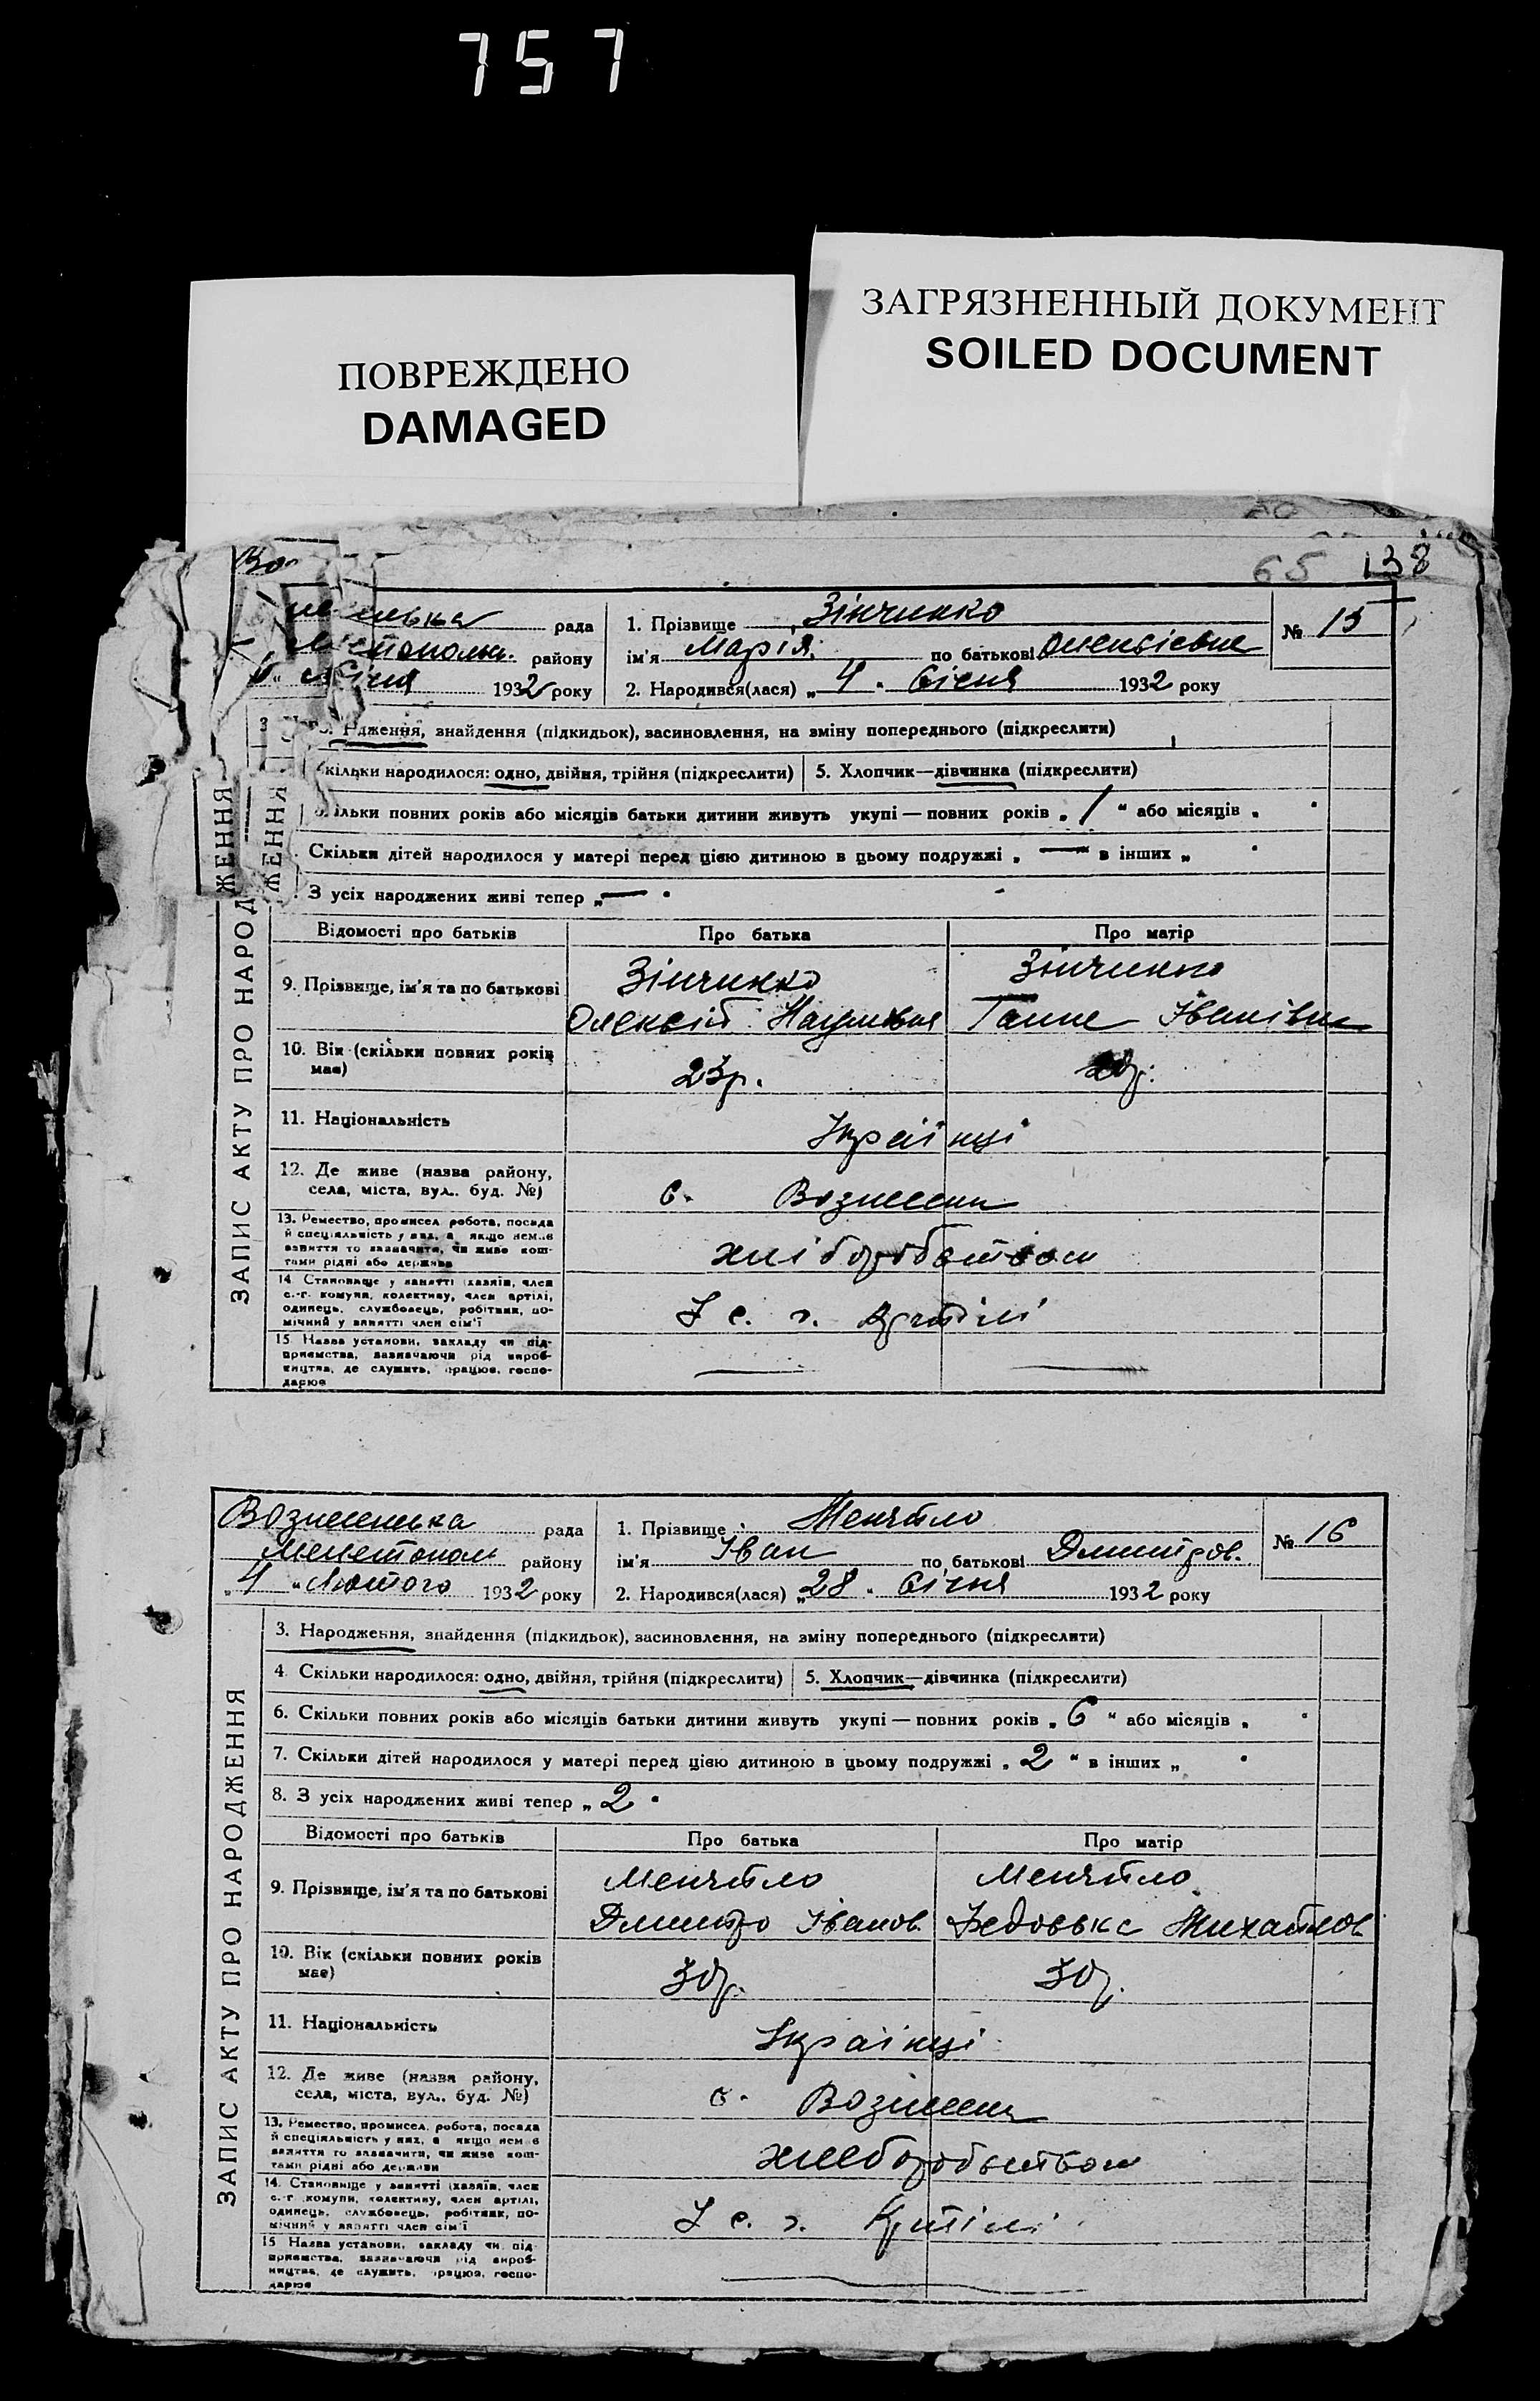 757
ПОВРЕЖДЕНО
DAMAGED
ЗАГРЯЗНЕННЫЙ ДОКУМЕНТ
SOILED DOCUMENT
65 138
рада
району
1932 року
1. Прізвище Зінчинко
ім'я Марія по батькові Олексієвна
2. Народився(лася) „4" Січня 1932 року
№ 15
дження, знайдення (підкидьок), засиновлення, на зміну попереднього (підкреслити)
кільки народилося: одно, двійня, трійня (підкреслити) 5. Хлопчик—дівчинка (підкреслити)
ільки повних років або місяців батьки дитини живуть укупі — повних років „1" або місяців „ "
Скільки дітей народилося у матері перед цією дитиною в цьому подружжі „— в інших „ "
З усіх народжених живі тепер „—"
Відомості про батьків Про батька Про матір
9. Прізвище, ім'я та по батькові Зінчинко Зінчинко
Олексій Наумовия Ганна Іванівна
10. Вік (скільки повних років має) 23р.
11. Національність Українці
12. Де живе (назва району, села, міста, вул., буд. №) с. Вознесени
13. Ремество, промисел робота, посада й спеціяльність у них, а якщо немає заняття то зазначити, чи живе коштами рідні або держави хліборобством
14. Становище у занятті (хазяїн, член с.-г. комуни, колективу, член артілі, одинець, службовець, робітник, помічний у занятті член сім'ї У с. г. Артілі
15. Назва установи, закладу чи підприємства, зазначаючи рід виробництва, де служить, працює, господарює
ЗАПИС АКТУ ПРО НАРОДЖЕННЯ
Вознесенська рада
Мелетополь району
„4" Лютого 1932 року
1. Прізвище Менчтло
ім'я Іван по батькові Дмитров.
2. Народився(лася) „28" Січня 1932 року
№ 16
3. Народження, знайдення (підкидьок), засиновлення, на зміну попереднього (підкреслити)
4. Скільки народилося: одно, двійня, трійня (підкреслити) 5. Хлопчик—дівчинка (підкреслити)
6. Скільки повних років або місяців батьки дитини живуть укупі — повних років „6" або місяців „ "
7. Скільки дітей народилося у матері перед цією дитиною в цьому подружжі „2" в інших „ "
8. З усіх народжених живі тепер „2"
Відомості про батьків Про батька Про матір
9. Прізвище, ім'я та по батькові Менчтло Менчтло
Дмитро Іванов. Михайлов.
10. Вік (скільки повних років має) 30р. 30р.
11. Національність Українці
12. Де живе (назва району, села, міста, вул., буд. №) с. Вознесен
13. Ремество, промисел, робота, посада й спеціяльність у них, а якщо немає заняття то зазначити, чи живе коштами рідні або держави хлеборобством
14. Становище у занятті (хазяїн, член с.-г. комуни, колективу, член артілі, одинець, службовець, робітник, помічний у занятті член сім'ї У с. г. Артілі
15 Назва установи, закладу чи підприємства, зазначаючи рід виробництва, де служить, працює, господарює
ЗАПИС АКТУ ПРО НАРОДЖЕННЯ